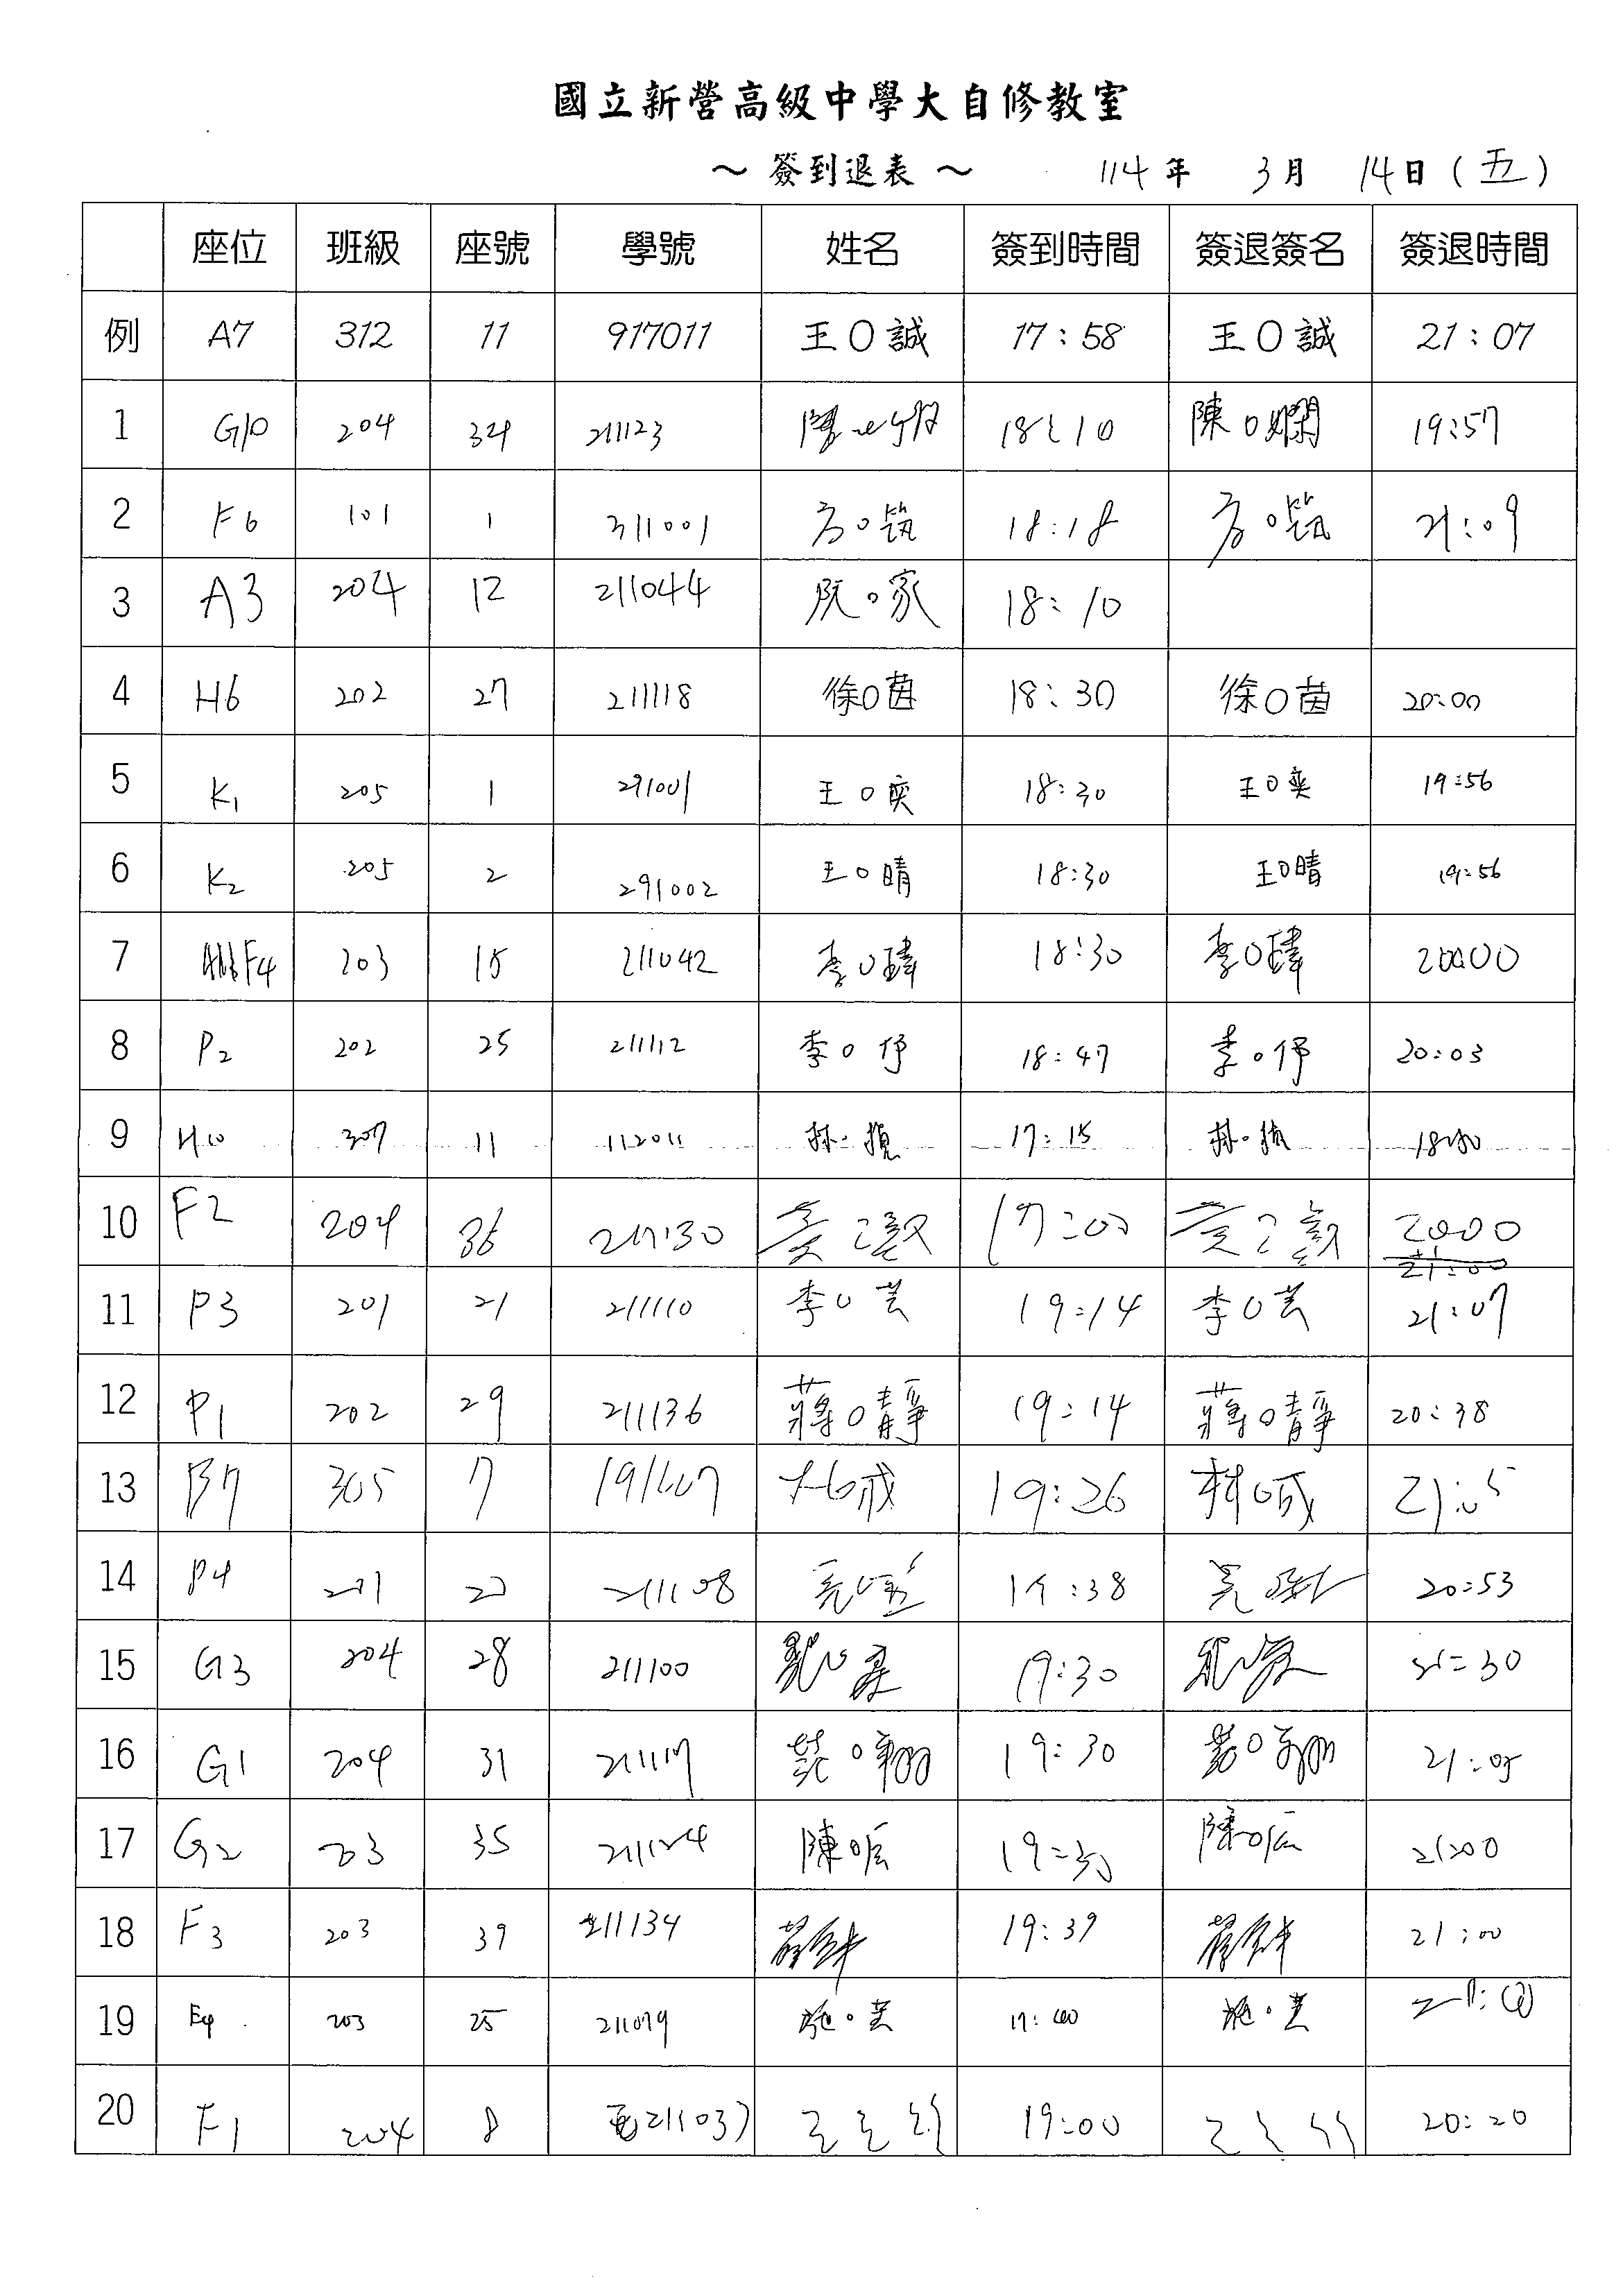 國立新營高級中學大自修教室
～ 簽到退表 ～ 114 年 3 月 14 日 ( 五 )
座位 班級 座號 學號 姓名 簽到時間 簽退簽名 簽退時間
例 A7 312 11 917011 王O誠 17:58 王O誠 21:07
1 G10 204 34 211123 18:10 陳O嫻 19:57
2 F6 101 1 311001 方O筑 18:18 方O筑 21:09
3 A3 204 12 211044 阮O家 18:10
4 H6 202 27 211118 徐O茵 18:30 徐O茵 20:00
5 K1 205 1 291001 王O奕 18:30 王O奕 19:56
6 K2 205 2 291002 王O晴 18:30 王O晴 19:56
7 F4 203 15 211042 李O瑋 18:30 李O瑋 20:00
8 P2 202 25 211112 李O伃 18:47 李O伃 20:03
9 H10 307 11 112011 17:15
10 F2 204 36 211130 17:00 2000
11 P3 201 21 211110 李O芸 19:14 李O芸 21:07
12 P1 202 29 211136 蔣O靜 19:14 蔣O靜 20:38
13 B7 305 7 19:26 林O成 21:05
14 P4 201 20 211108 19:38 20:53
15 G3 204 28 211100 19:30
16 G1 204 31 211117 19:30 21:05
17 G2 203 35 211124 陳O妘 19:30 陳O妘 2100
18 F3 203 39 211134 19:39 21:00
19 E4 203 25 211079 施O芸 17:00 施O芸
20 F1 204 8 211037 19:00 20:20